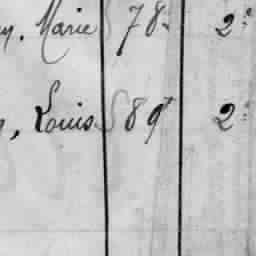 Marie 78 2
Louis 89 2